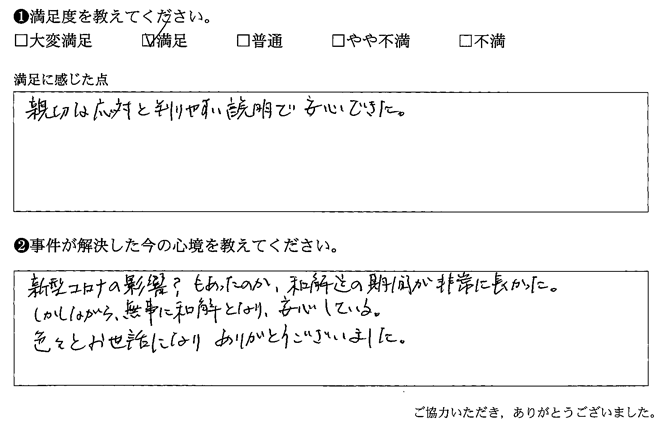 ❶満足度を教えてください。
□大変満足 ☑満足 □普通 □やや不満 □不満
満足に感じた点
親切な応対と判りやすい説明で安心できた。
❷事件が解決した今の心境を教えてください。
新型コロナの影響?もあったのか、和解迄の期間が非常に長かった。
しかしながら、無事に和解となり、安心している。
色々とお世話になりありがとうございました。
ご協力いただき，ありがとうございました。